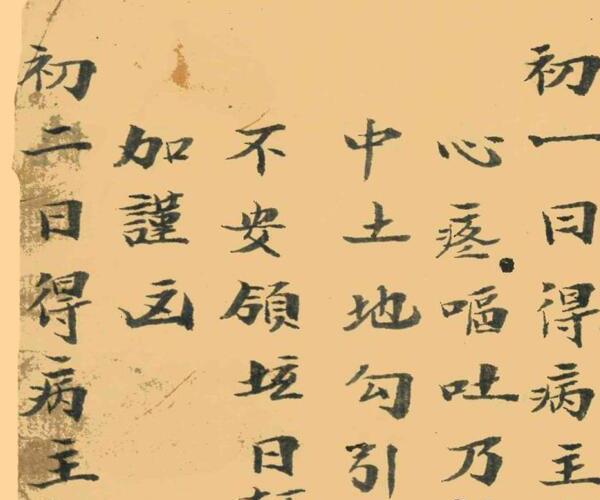 初一日得病主
心疼嘔吐乃
中土地勾引
不安領坟日
加謹凶
初二日得病主